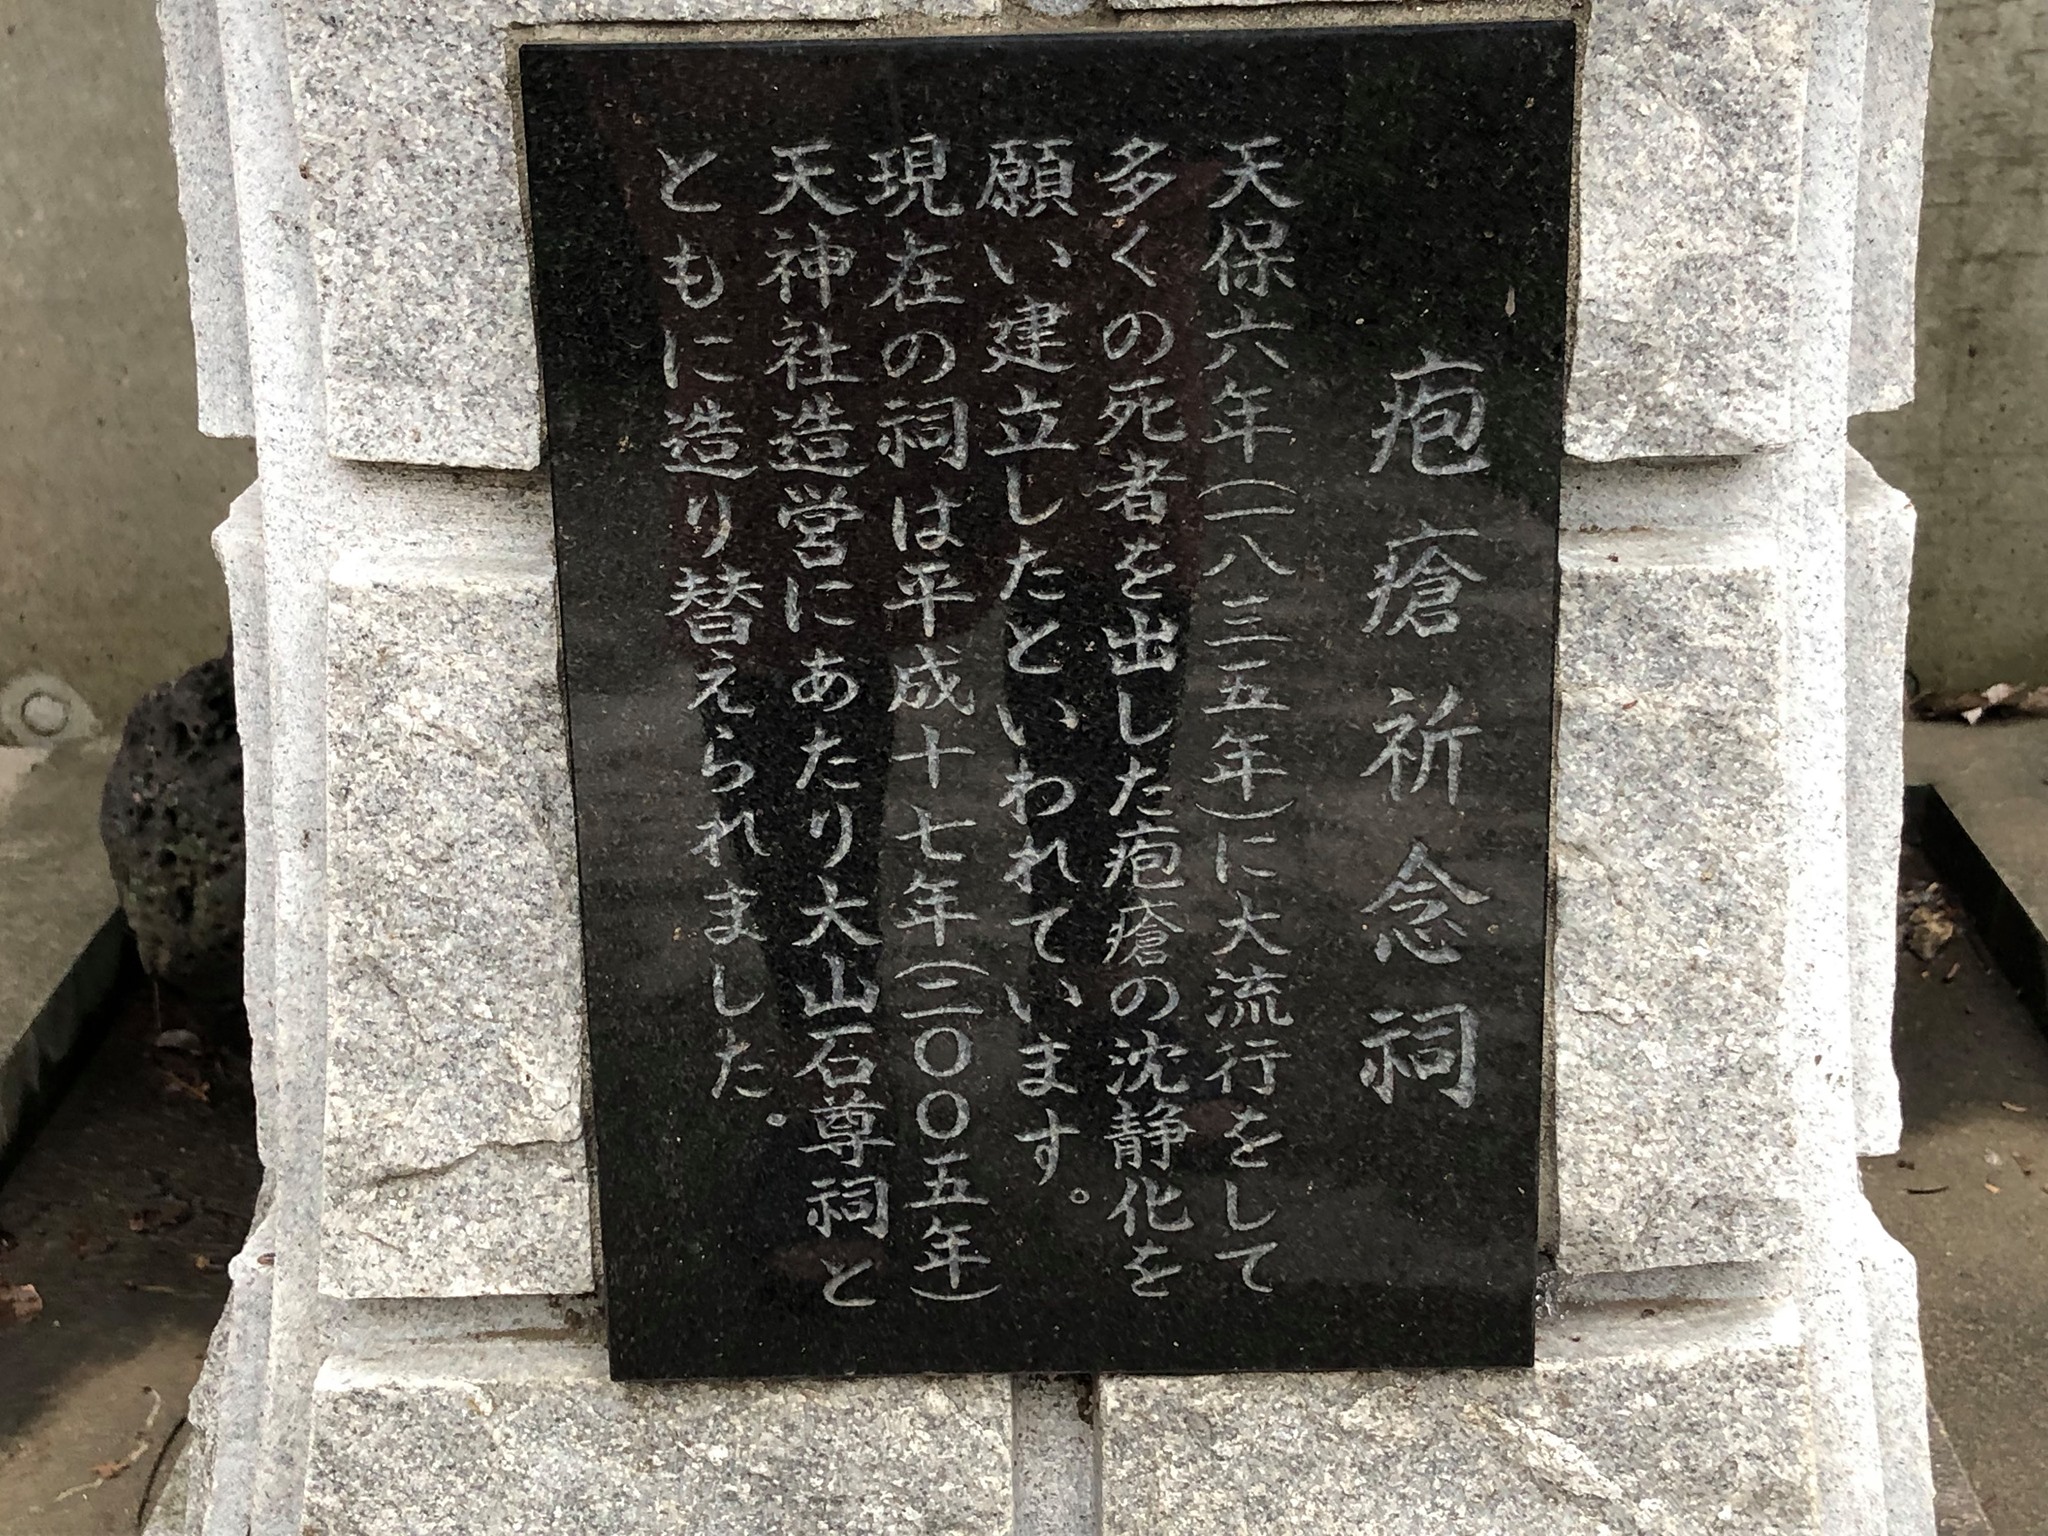 疱瘡祈念祠
天保六年(一八三五年)に大流行をして
多くの死者を出した疱瘡の沈静化を
願い建立したといわれています。
現在の祠は平成十七年(二〇〇五年)
天神社造営にあたり大山石尊祠と
ともに造り替えられました。